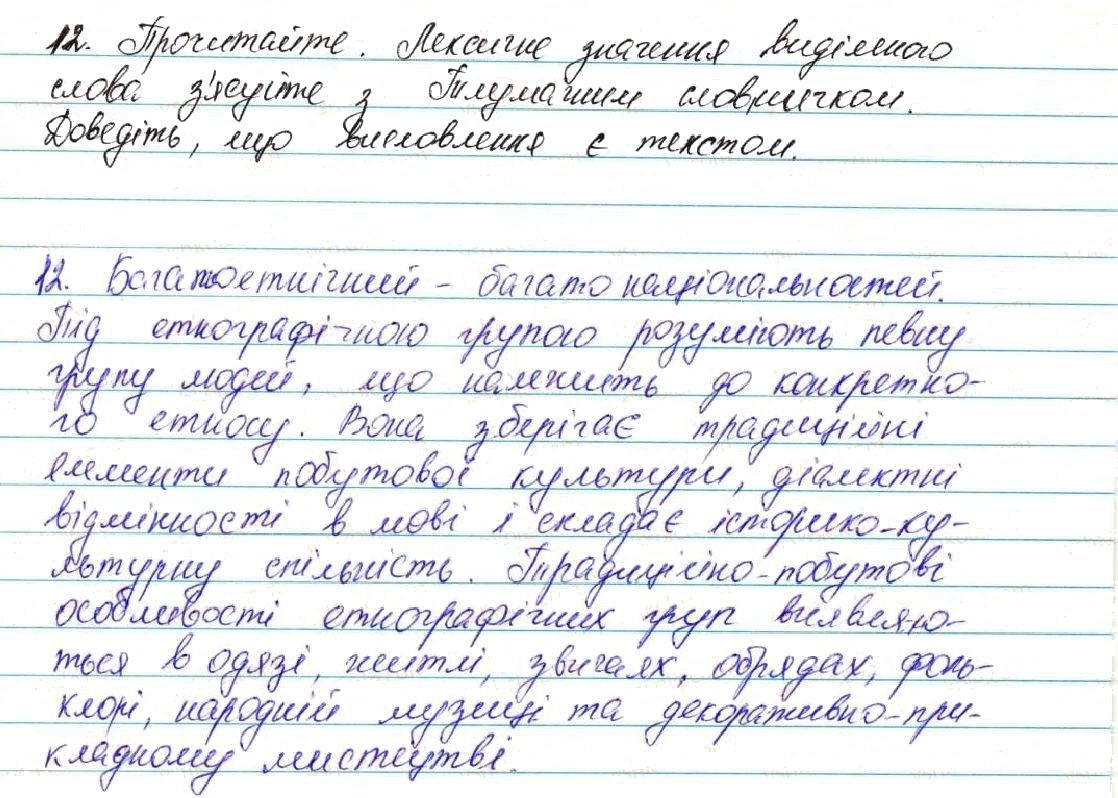 12. Прочитайте. Лексичне значення виділеного
слова з'ясуйте з Тлумачним словничком.
Доведіть, що висловлення є текстом.
12. Багатоетнічний - багато національностей.
Під етнографічною групою розуміють певну
групу людей, що належить до конкретно-
го етносу. Вона зберігає традиційні
елементи побутової культури, діалектні
відмінності в мові і складає історико-ку-
льтурну спільність. Традиційно-побутові
особливості етнографічних груп виявляю-
ться в одязі, житлі, звичаях, обрядах, фоль-
клорі, народній музиці та декоративно-при-
кладному мистецтві.